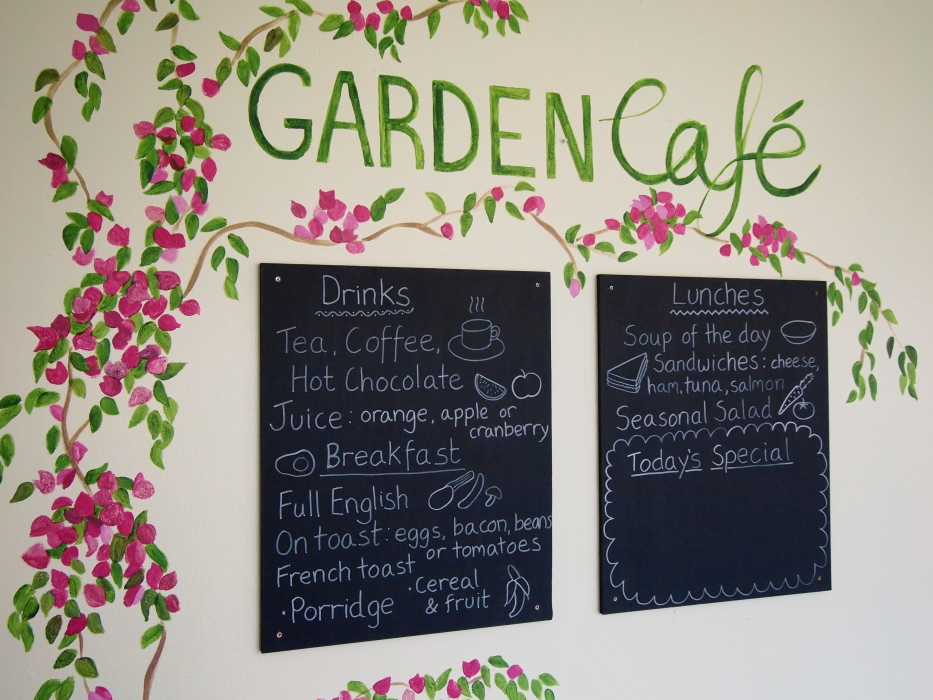 GARDEN Café
Drinks
Tea, Coffee,
Hot Chocolate
Juice: orange, apple or
cranberry
Breakfast
Full English
On toast: eggs, bacon, beans
or tomatoes
French toast
·Cereal
& fruit
·Porridge
Lunches
Soup of the day
Sandwiches: cheese,
ham, tuna, salmon
Seasonal Salad
Today's Special